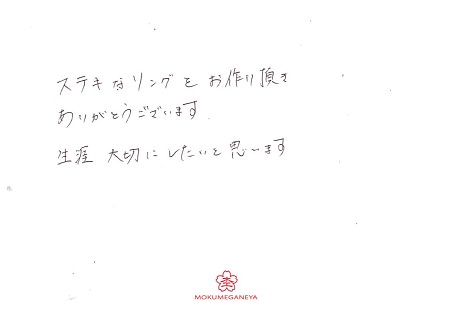 ステキなリングをお作り頂き
ありがとうございます.
生涯 大切にしたいと思います
MOKUMEGANEYA